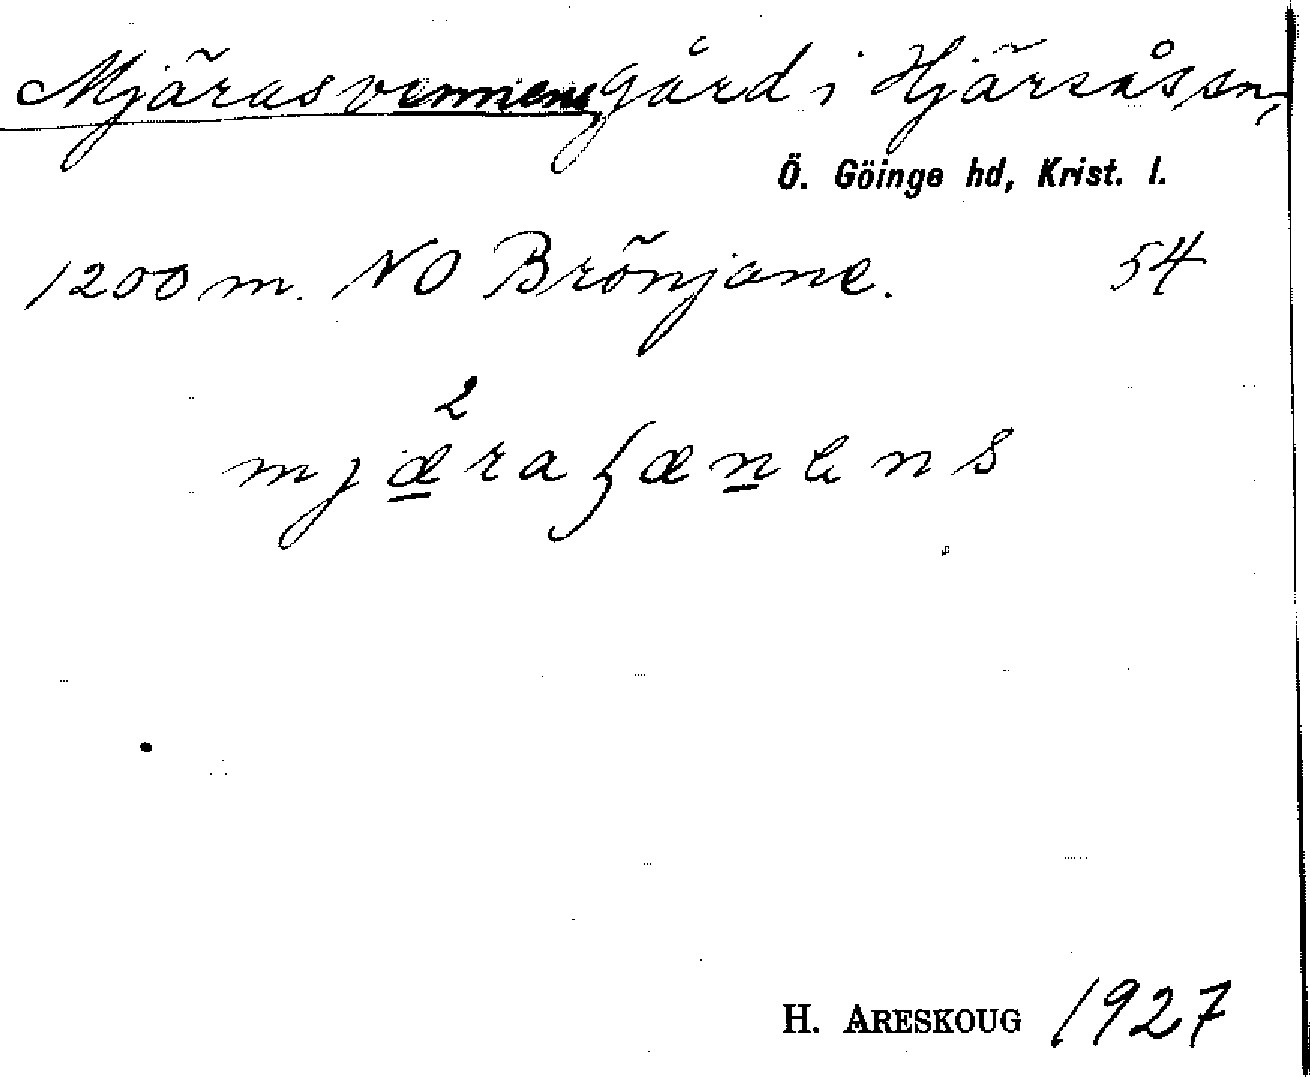 Mjärasvennens gård i Hjärsås sn,
Ö. Göinge hd, Krist. l.
1200 m. NO Brönjane. 54
2
mjæraʃænens
H. ARESKOUG 1927